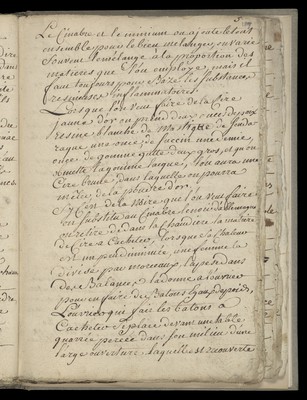 Le Cinabre et le minium ou
ensemble pour le bien melanger, on varie
souvent le mélange a la proportion des
matieres que l'on employe, mais il
faut toujours pour Baze les substances
resineuses inflammatoires.
Lorsque l'on veut faire de la Cire
jaune d'or on prend deux onces de poix
resine blanche, de Mastic et de Sanda-
raque une once, de succin une demie
once de gomme gutte deux gros, et si on
omette la gomme laque, l'on aura une
Cire brune dans laquelle on pourra
meler de la poudre d'or.
Si c'est de la noire que l'on veut faire
on substitue au Cinabre le noir d'Allemagne
on retire de dans la chaudiere la matiere
de Cire a Cacheter, lorsque la chaleur
est un peu diminuée, une femme la
divise par morceaux, la pese dans
des Balances et la donne a l'ouvrier
pour en faire des Batons
L'ouvrier qui fait les batons a
Cacheter se place devant une table
quarrée percée dans son milieu d'une
large ouverture, laquelle est recouverte